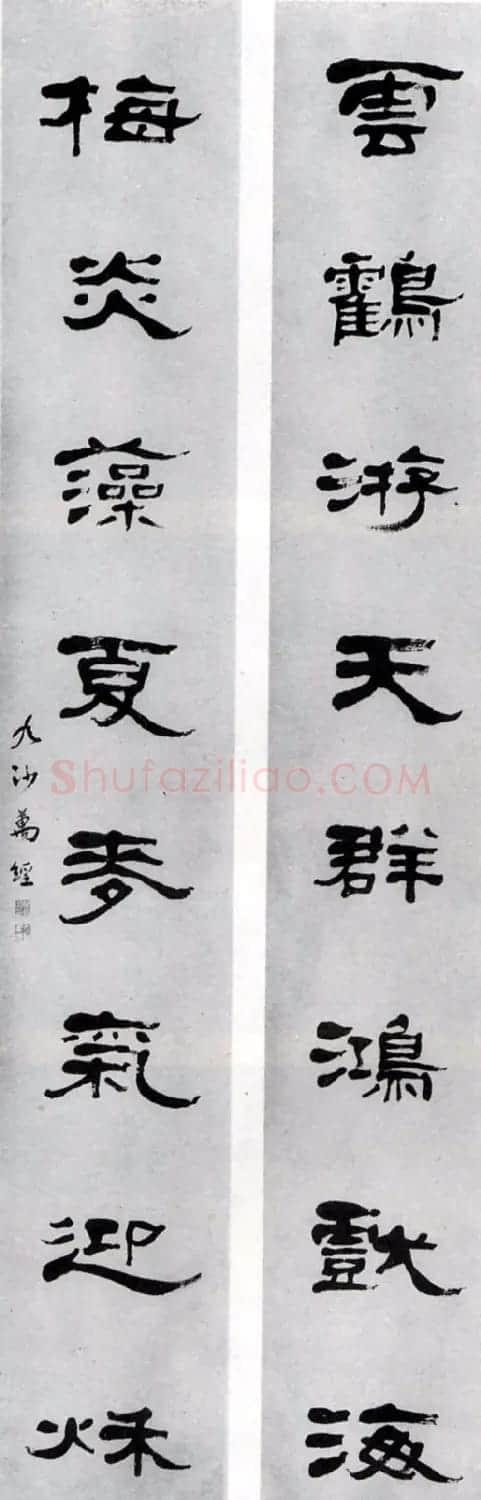 雲鸖游天群鴻戲海
梅炎藻夏麦氣迎秌
九沙萬經
Shufaziliao.COM